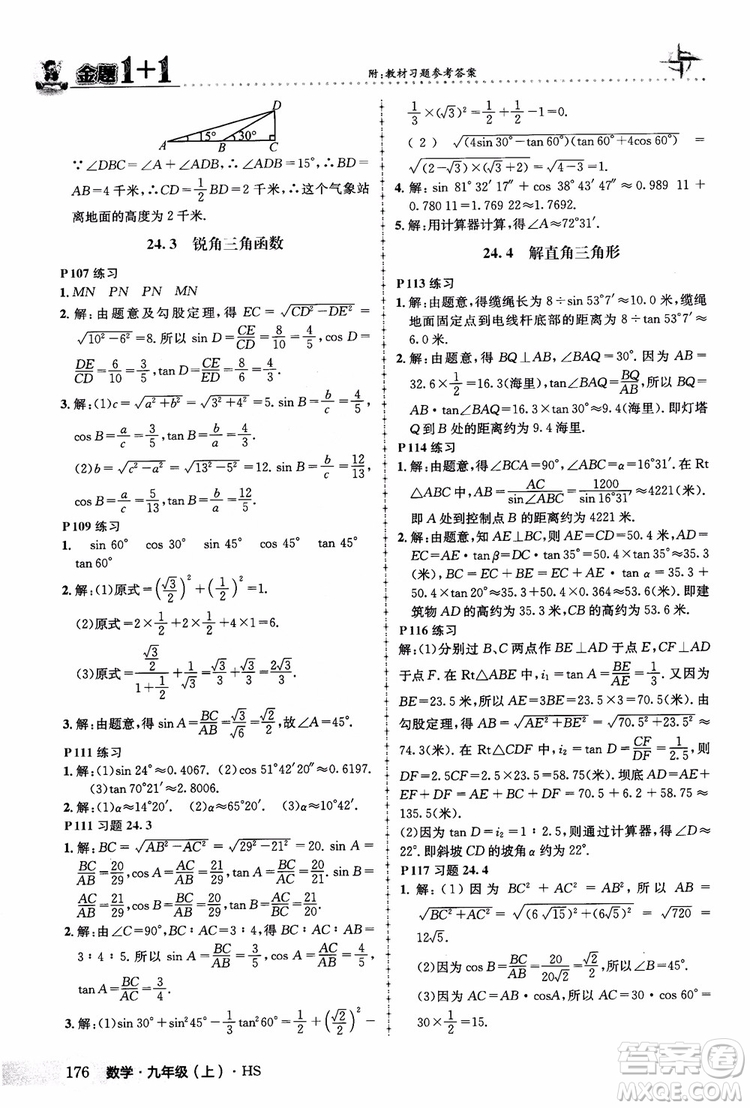 金题1+1
附:教材习题参考答案
D
15°
30°
A B C
∵∠DBC=∠A+∠ADB,∴∠ADB=15°,∴BD=
AB=4 千米,∴CD=1/2 BD=2 千米,∴这个气象站
离地面的高度为 2 千米.
24.3 锐角三角函数
P107 练习
1. MN PN PN MN
2. 解:由题意及勾股定理,得 EC=√(CD²−DE²)=
√(10²−6²)=8. 所以 sin D=CE/CD=8/10=4/5, cos D=
DE/CD=6/10=3/5, tan D=CE/ED=8/6=4/3.
3. 解:(1)c=√(a²+b²)=√(3²+4²)=5. sin B=b/c=4/5,
cos B=a/c=3/5, tan B=b/a=4/3.
(2)b=√(c²−a²)=√(13²−5²)=12. sin B=b/c=12/13,
cos B=a/c=5/13, tan B=b/a=12/5.
P109 练习
1. sin 60° cos 30° sin 45° cos 45° tan 45°
tan 60°
2. 解:(1)原式=(√3/2)²+(1/2)²=1.
(2)原式=1/2+2×1/2×1=3/2.
(3)原式=(√3/2)/(1+1/2)=√3/3.
3. 解:由题意,得 sin A=BC/AB=√3/√6=√2/2,故∠A=45°.
P111 练习
1. 解:(1)sin 24°≈0.4067. (2)cos 51°42′20″≈0.6197.
(3)tan 70°21′≈2.8006.
2. 解:(1)α≈36°7′. (2)α≈8°2′.
P111 习题 24.3
1. 解:BC=√(AB²−AC²)=√(29²−21²)=20. sin A=
BC/AB=20/29, cos A=AC/AB=21/29, sin B=AC/AB=21/29,
cos B=BC/AB=20/29.
2. 解:由∠C=90°,BC∶AC=3∶4,得 BC∶AC∶AB=
3∶4∶5. 所以 sin A=BC/AB=3/5, cos A=AC/AB=4/5,
tan A=BC/AC=3/4.
3. 解:(1)原式=2×1/2+2×1/2+4×1=6. (2)原式=(√3/2)²+
1/3×(√3)²=7/4.
(2) √((4sin 30°−tan 60°)(tan 60°+4cos 60°))=
√((2−√3)(√3+2))=1.
4. 解:sin 81°32′17″+cos 38°43′47″≈0.989 11+
0.780 11≈1.7692.
5. 解:用计算器计算,得∠A≈72°31′.
24.4 解直角三角形
P113 练习
1. 解:由题意,得缆绳长为 8÷sin 53°7′≈10.0 米,缆绳
地面固定点到电线杆底部的距离为 8÷tan 53°7′≈
6.0 米.
2. 解:由题意,得 BQ⊥AB,∠BAQ=30°. 因为 AB=
32.6×1/2=16.3(海里),tan∠BAQ=BQ/AB,所以 BQ=
AB·tan∠BAQ=16.3×tan 30°≈9.4(海里). 即灯塔
Q 到 B 处的距离为 9.4 海里.
P114 练习
1. 解:由题意,得∠BCA=90°,∠ABC=α=16°31′. 在 Rt
△ABC 中,AB=AC/sin∠ABC=1200/sin 16°31′≈4221(米).
即 A 到控制点 B 的距离约为 4221 米.
2. 解:由题意,知 AE⊥BC,所以 BE=AE·tan α,EC=
AE·tan β=DC=tan 35°=tan 35°×36≈25.2(米).所以
BC=BE+EC=BE+AD=AE·tan α+25.2=36×
tan 39°+25.2≈54.4(米),AD=EC≈25.3(米). 即建
筑物 AD 的高约为 25.3 米,BC 的高约为 54.4 米.
P116 练习
解:(1)分别过 B、C 两点作 BE⊥AD 于点 E,CF⊥AD
于点 F. 在 Rt△ABE 中,i₁=tan A=BE/AE=1/3. 因为
BE=23.5 米,所以 AE=3BE=23.5×3=70.5(米). 由
勾股定理,得 AB=√(AE²+BE²)=√(70.5²+23.5²)≈
74.3(米). 在 Rt△CDF 中,i₂=tan D=CF/DF=1/2.5,所以
DF=2.5CF=2.5×23.5≈58.8(米). 坝底 AD=AE+
EF+DF=AE+BC+DF=70.5+6+58.8≈
135.3(米).
(2)因为 tan D=1∶2.5,所以通过计算器,得∠D≈
22°. 即斜坡 CD 的坡角 α 约为 22°.
P117 习题 24.4
1. 解:(1)因为 BC²+AC²=AB²,所以 AB=
√(BC²+AC²)=√((6√15)²+(6√5)²)=√720=
12√5.
(2)因为 cos B=BC/AB=20/(20√2)=√2/2,所以∠B=45°.
(3)因为 AC=AB·cosA,所以 AC=30×cos 60°
=15.
176 数学·九年级(上)·HS
答案圈